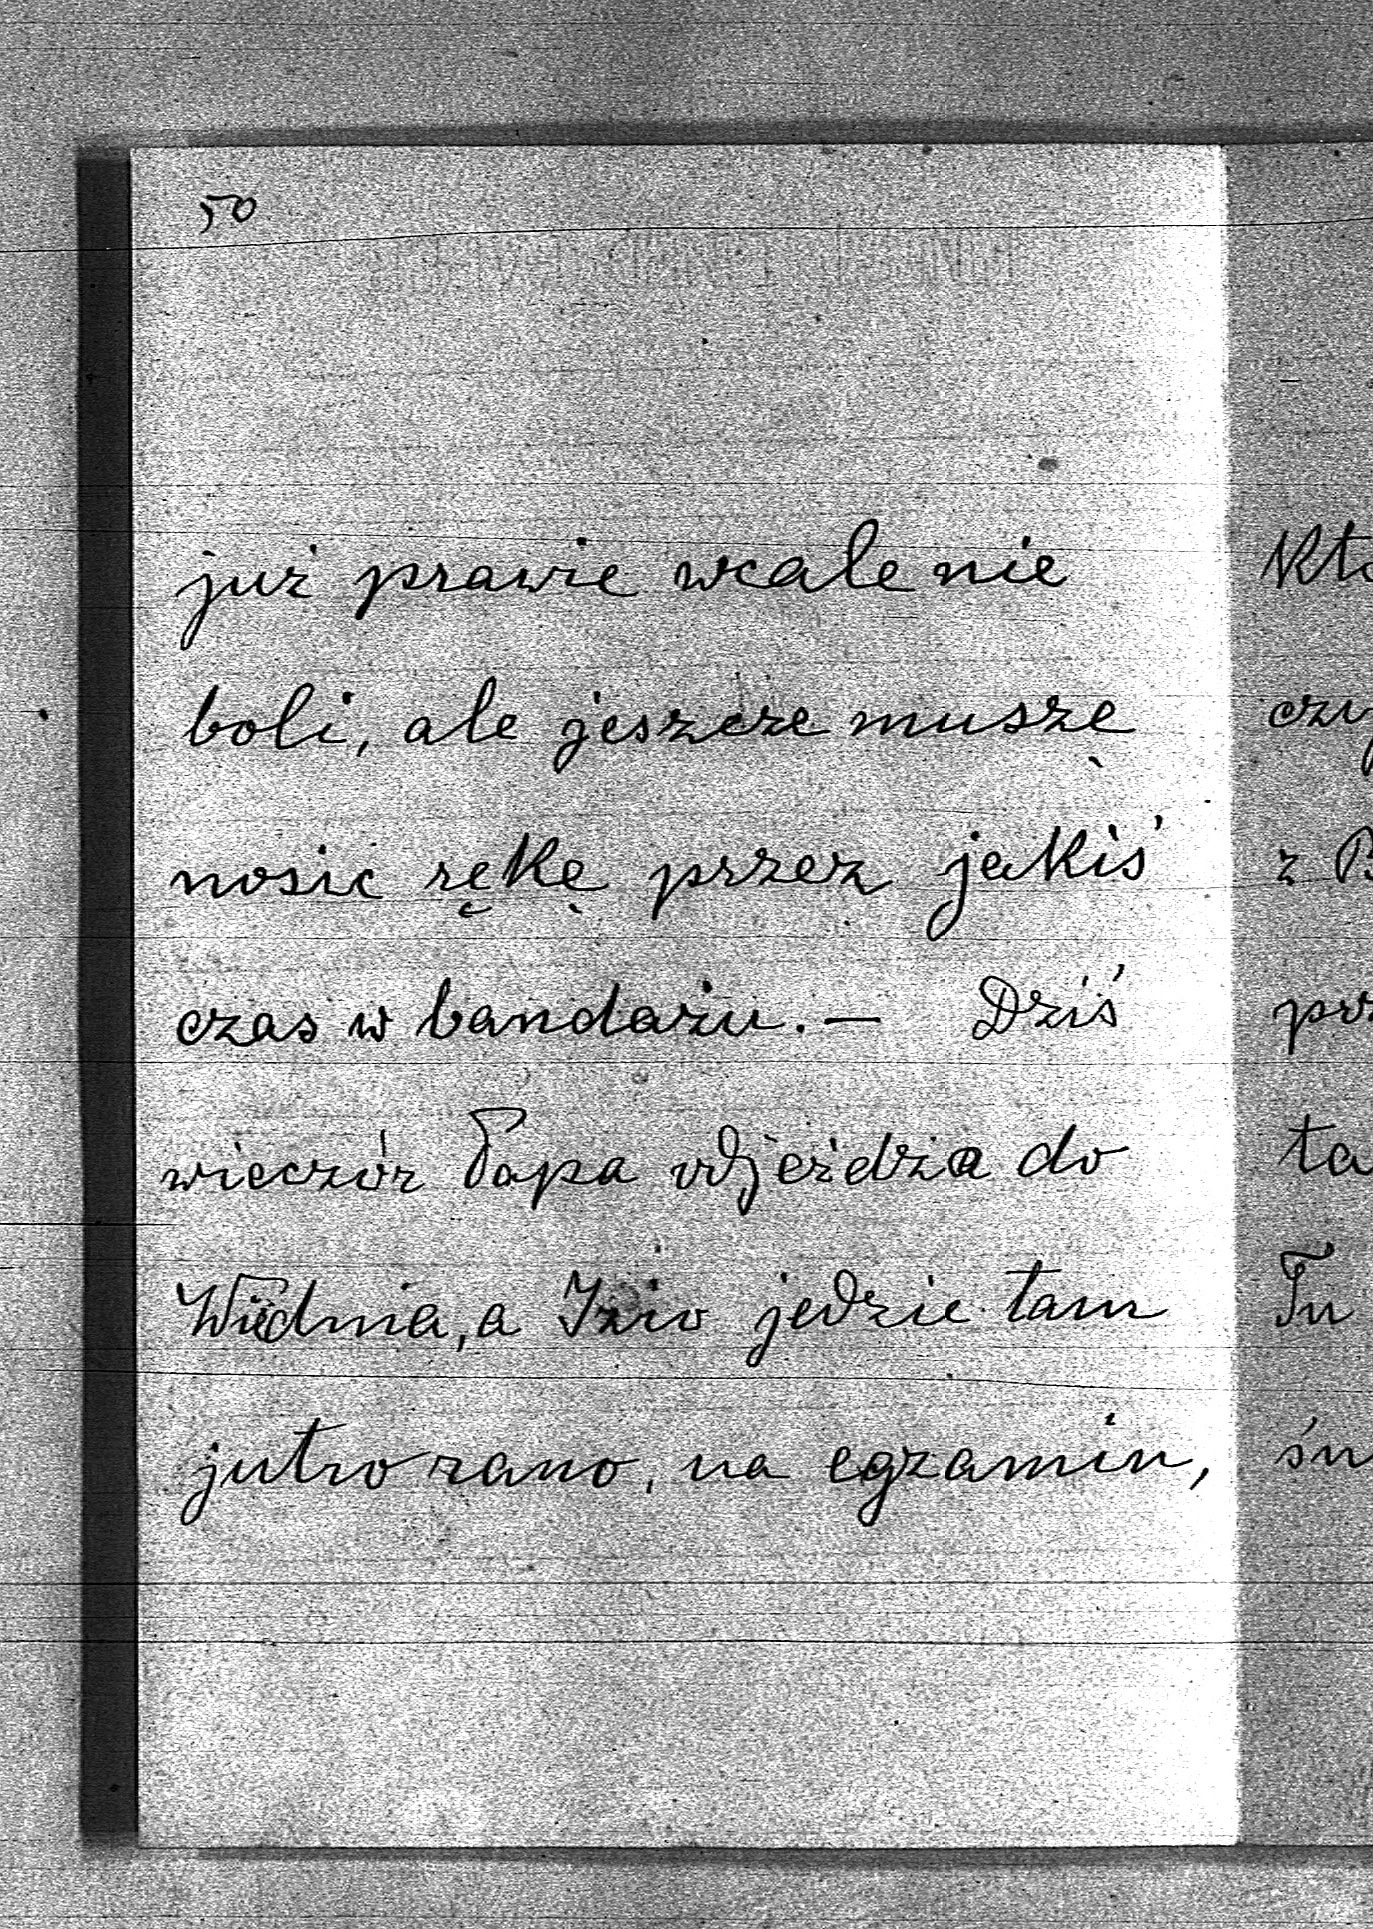 50
już prawie wcale nie
boli, ale jeszcze muszę
nosić rękę przez jakiś
czas w bandażu. — Dziś
wieczór Papa odjeżdża do
Wiednia, a Izio jedzie tam
jutro rano, na egzamin,